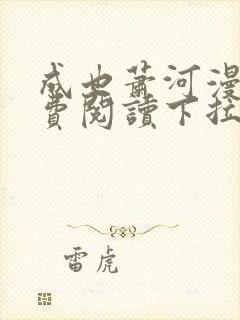 成也蕭河漫
費閱讀下拉
雷虎